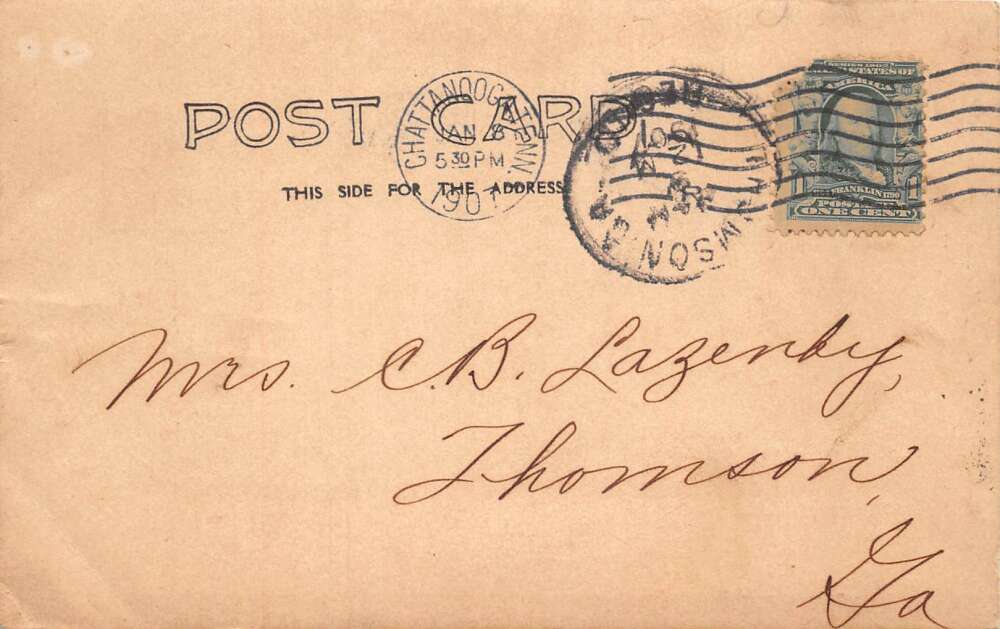 POST CARD
THIS SIDE FOR THE ADDRESS
CHATTANOOGA, TENN.
JAN 8
5 30 PM
1907
REC'D
THOMSON, GA
SERIES 1902
UNITED STATES OF
AMERICA
FRANKLIN 1790
1 POSTAGE 1
ONE CENT
Mrs. C. B. Lazenby,
Thomson,
Ga